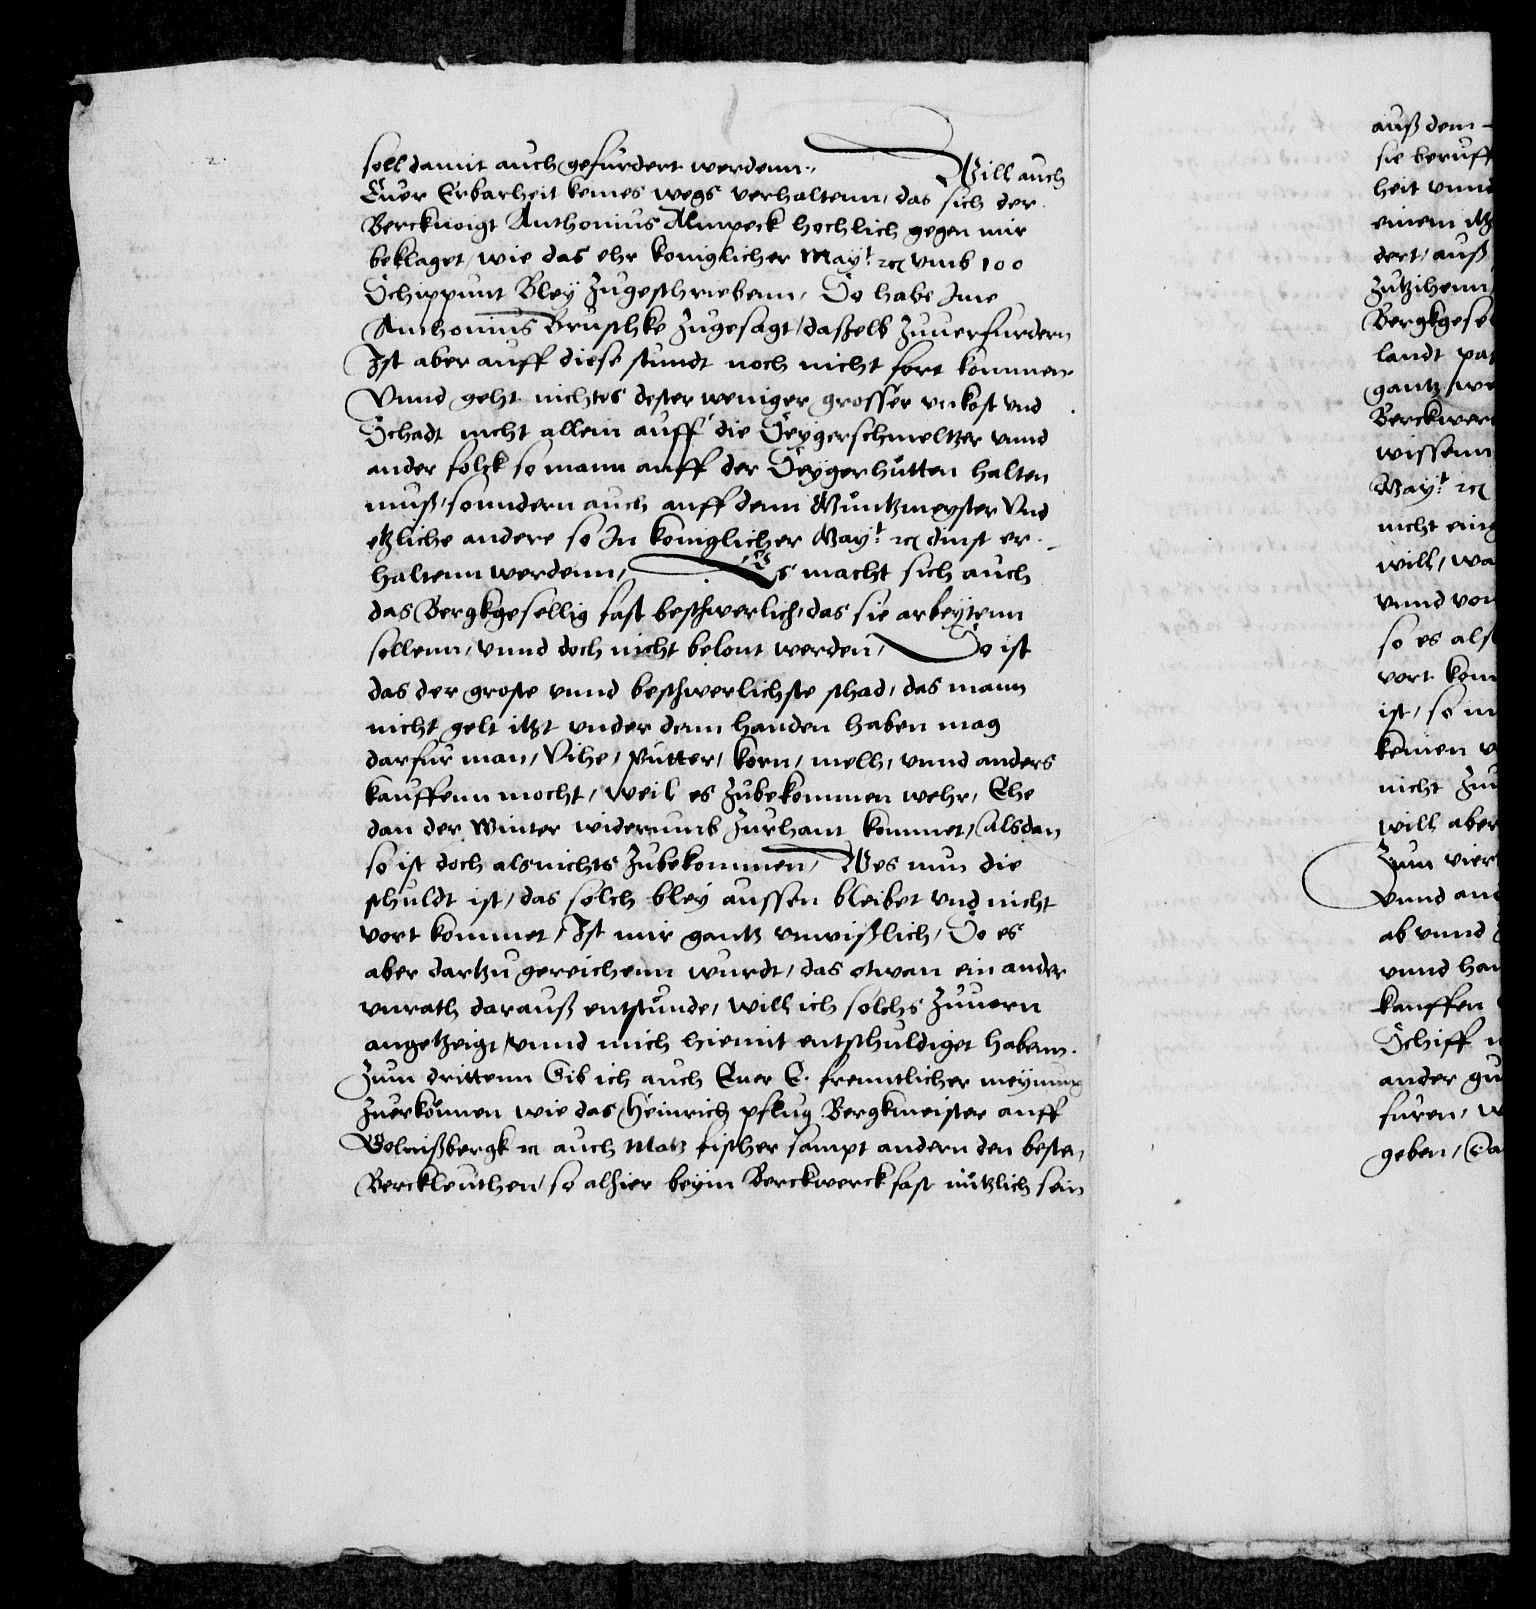 soll damit auch gefürdert werdenn, Will auch
Euer Erbarheit keines wegs verhaltenn, das sich der
Berckuoigt Anthonius Alnpeck hochlich gegen mir
beklaget, wie das ehr koniglicher Mayt. rc umb 100
Schippunt Bley Zugeschriebenn, So habe Ime
Anthonius Bruschke zugesagt, daßelb Zuuerfurdern
Ist aber auff diese stundt noch nicht fort kommen.
Unnd geht nichts dester weniger grosser unkost und
Schadt nicht allein auff die Seygerschmeltzer unnd
ander folck so mann auff der Seygerhutten halten
muß, sonndern auch auff denn Muntzmeyster Und
etzliche andere so In koniglicher Mayt. rc dinst er-
haltenn werdenn, Es macht sich auch
das Bergkgesellig fast beschwerlich, das sie arbeytenn
sollenn, unnd doch nicht belont werden, So ist
das der groste unnd beschwerlichste schad, das mann
nicht gelt itzt under denn handen haben mag
darfur man, Vihe, Putter, korn, mell, unnd anders
kauffenn mocht, weil es Zubekommen wehr, Ehe
dan der Winter widerumb Zurhant kommet, alsdan
so ist doch als nichts Zubekommen, Wes nun die
schuldt ist, das solch bley aussen bleibet und nicht
vort kommet, Ist mir gantz unwißlich, So es
aber dartzu gereichenn wurdt, das etwan ein ander
unrath darauß entstunde, will ich solchs Zuuorn
angetzeigt, unnd mich hiemit entschuldiget habenn.
Zum drittenn Gib ich auch Euer E. freuntlicher meynung
Zuerkonnen wie das Heinrich pflug Bergkmeister auff
Golnißbergk rc auch Matz fischer sampt andern den besten,
Berckleuthen, so alhier beyin Berckwerck fast nützlich sein
auß dem
sie beruff
heit unnd
einem itz
dert, auß
Zutzihenn,
Bergkgesel
landt pat
gantz, we
Berckwer
wissenn
Mayt. rc
nicht einig
will, wa
unnd von
so es als
vort kom
ist, so
keinen
nicht Zu
will aber
Zum vier
Unnd and
ab unnd
unnd han
kauffen
Schiff
ander gu
furen, w
geben,